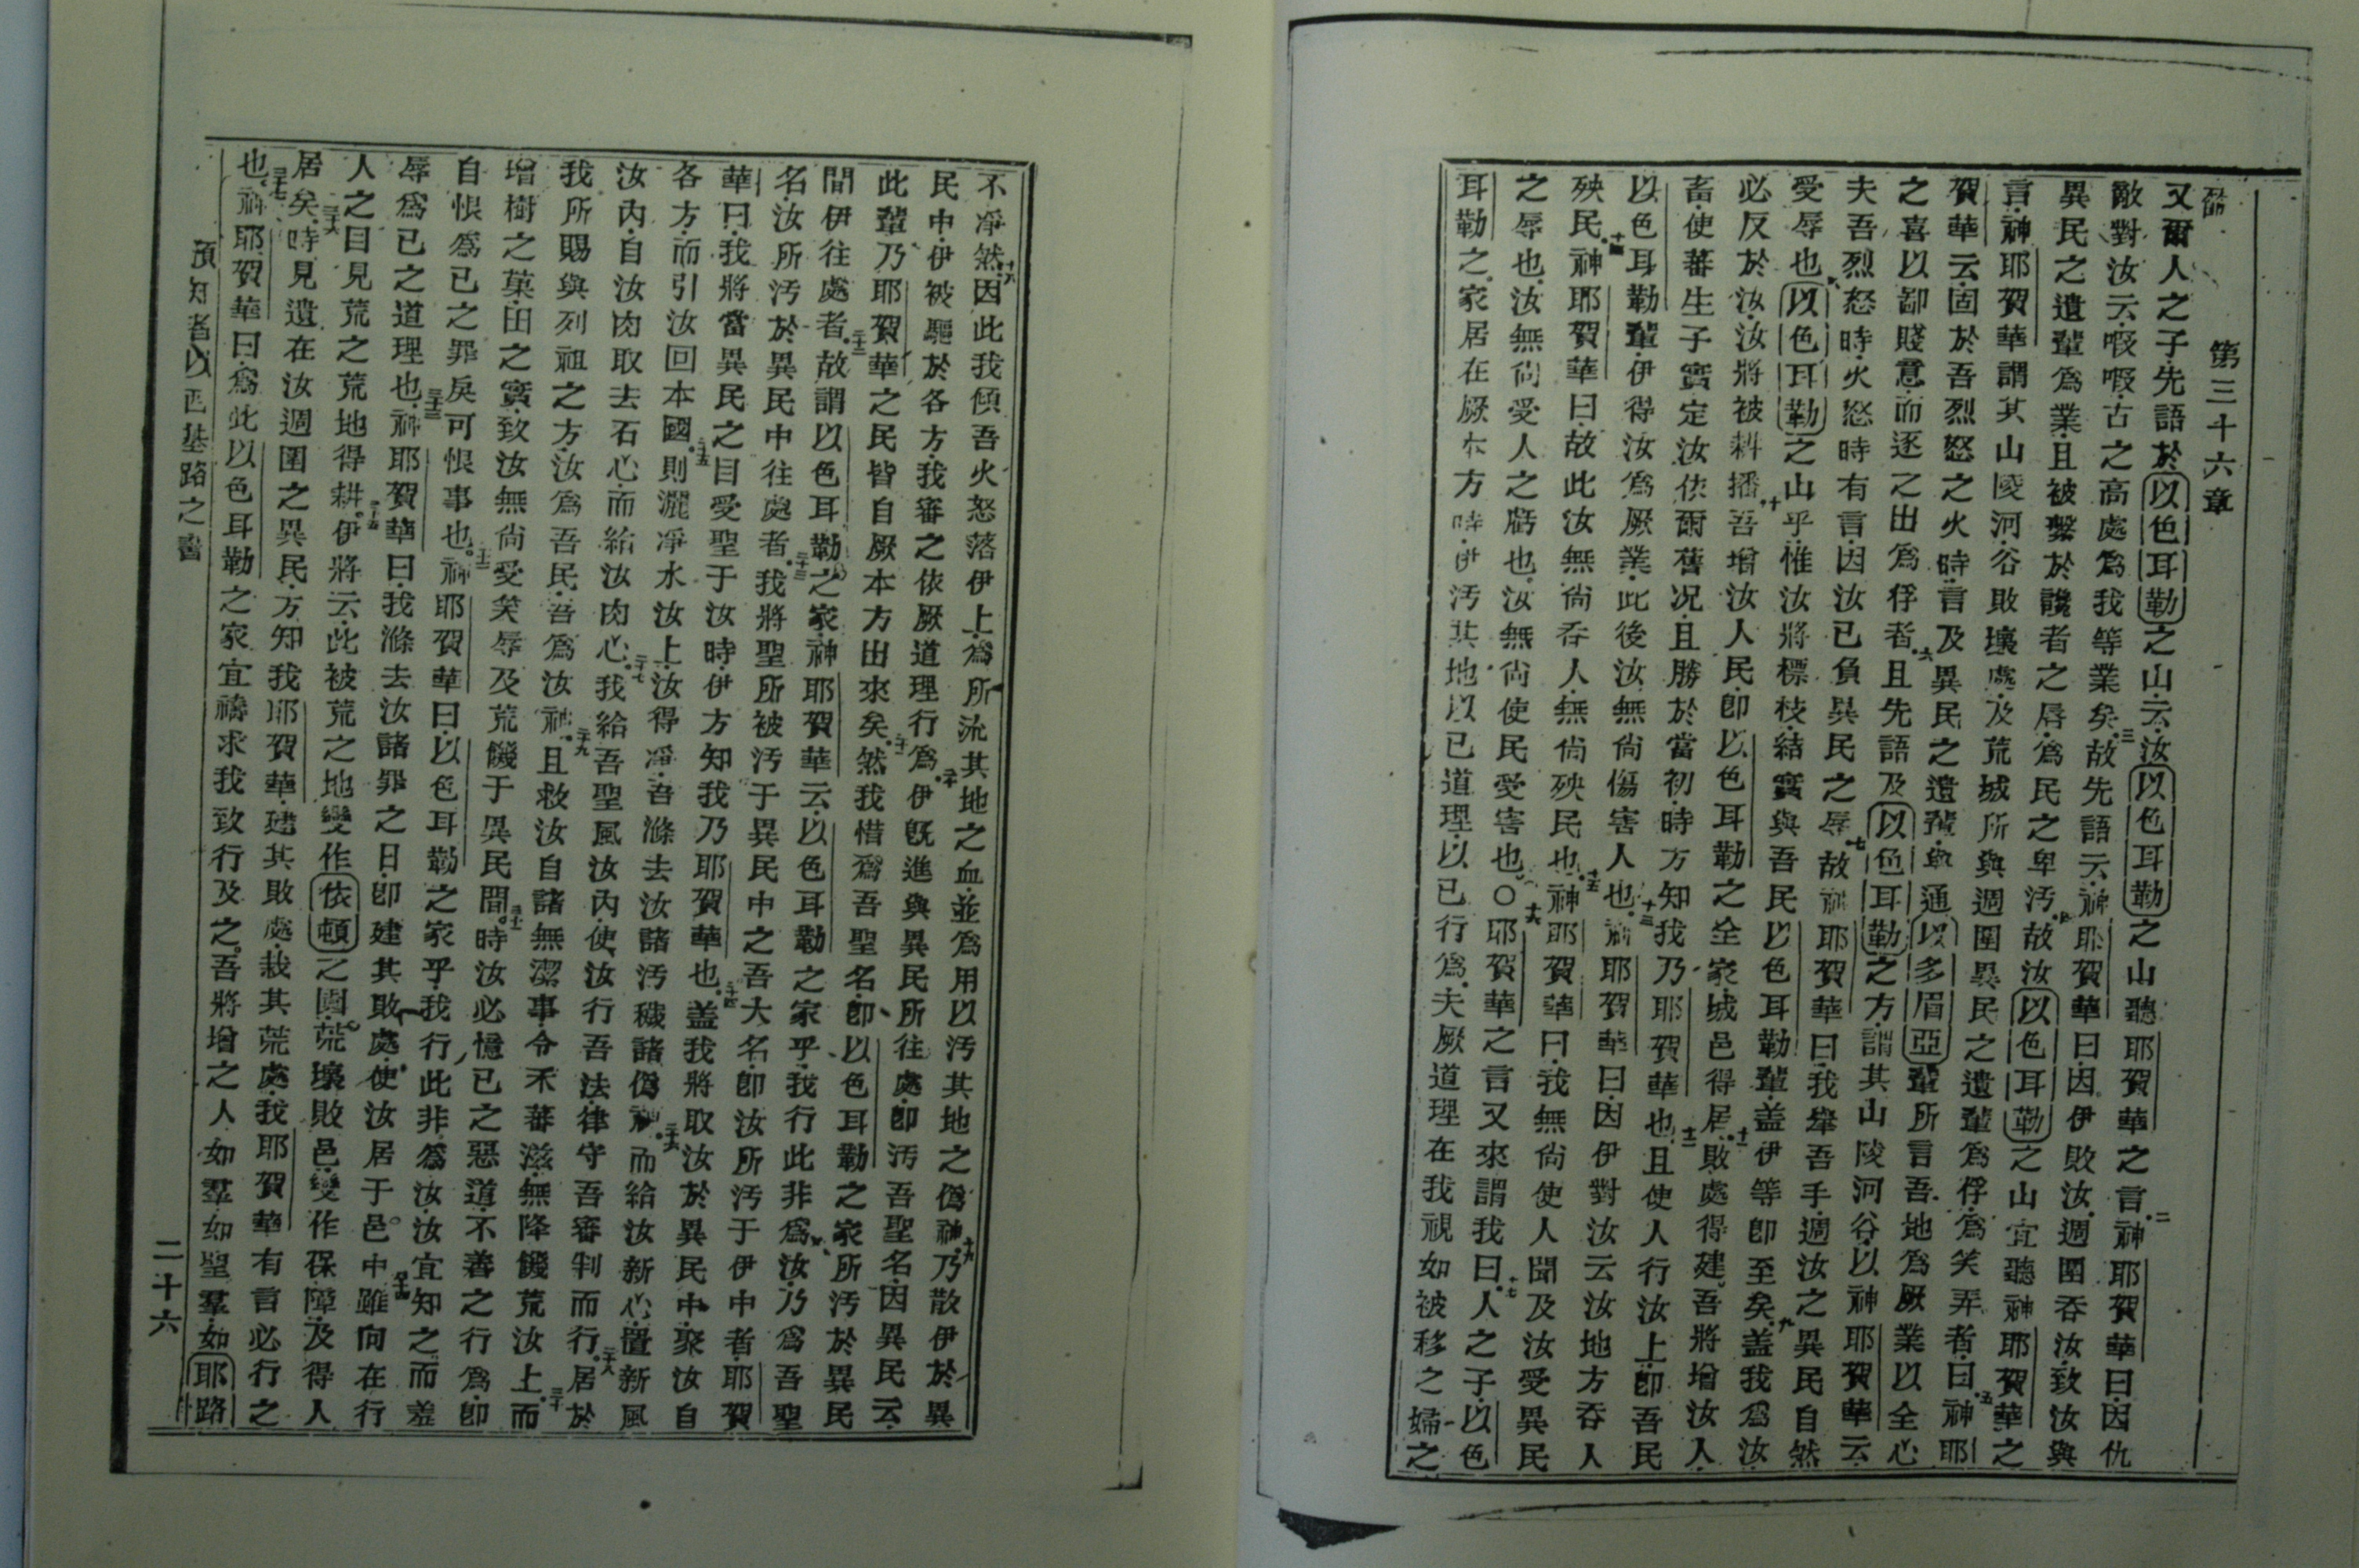 第三十六章
又爾人之子先語於以色耳勒之山云汝以色耳勒之山聽耶賀華之言二神耶賀華曰因仇
敵對汝云嘏嘏古之高處爲我等業矣三故先語云神耶賀華曰因伊敗汝週圍吞汝致汝與
異民之遺輩爲業且被繫於讒者之唇爲民之卑汚四故汝以色耳勒之山宜聽神耶賀華之
言神耶賀華謂其山陵河谷敗壞處及荒城所與週圍異民之遺輩爲俘爲笑弄者曰五神耶
賀華云固於吾烈怒之火時言及異民之遺輩與通以多眉亞輩所言吾地爲厥業以全心
之喜以鄙賤意而逐之出爲俘者六且先語及以色耳勒之方謂其山陵河谷以神耶賀華云
夫吾烈怒時火怒時有言因汝已負異民之辱七故神耶賀華曰我舉吾手週汝之異民自然
受辱也八以色耳勒之山乎惟汝將標枝結實與吾民以色耳勒輩蓋伊等卽至矣九蓋我爲汝
必反於汝汝將被耕播十吾增汝人民卽以色耳勒之全家城邑得居十一敗處得建吾將增汝人
畜使蕃生子實定汝依爾舊况且勝於當初時方知我乃耶賀華也十二且使人行汝上卽吾民
以色耳勒輩伊得汝爲厥業此後汝無尚傷害人也十三神耶賀華曰因伊對汝云汝地方吞人
殃民十四神耶賀華曰故此汝無尚吞人無尚殃民也十五神耶賀華曰我無尚使人聞及汝受異民
之辱也汝無尚受人之謗也汝無尚使民受害也〇十六耶賀華之言又來謂我曰十七人之子以色
耳勒之家居在厥本方時伊汚其地以已道理以已行爲夫厥道理在我視如被移之婦之
不凈然十八因此我傾吾火怒落伊上爲所流其地之血並爲用以汚其地之僞神十九乃散伊於異
民中伊被驅於各方我審之依厥道理行爲二十伊旣進與異民所往處卽汚吾聖名因異民云
此輩乃耶賀華之民皆自厥本方出來矣二十一然我惜爲吾聖名卽以色耳勒之家所汚於異民
間伊往處者二十二故謂以色耳勒之家神耶賀華云以色耳勒之家乎我行此非爲汝乃爲吾聖
名汝所汚於異民中往處者二十三我將聖所被汚于異民中之吾大名卽汝所汚于伊中者耶賀
華曰我將當異民之目受聖于汝時伊方知我乃耶賀華也二十四蓋我將取汝於異民中聚汝自
各方而引汝回本國二十五則灑凈水汝上汝得凈吾滌去汝諸汚穢諸僞神二十六而給汝新心置新風
汝內自汝肉取去石心而給汝肉心二十七我給吾聖風汝內使汝行吾法律守吾審判而行二十八居於
我所賜與列祖之方汝爲吾民吾爲汝神二十九且救汝自諸無潔事令禾蕃滋無降饑荒汝上三十而
增樹之菓田之實致汝無尚受笑辱及荒饑于異民間三十一時汝必憶已之惡道不善之行爲卽
自恨爲已之罪戾可恨事也三十二神耶賀華曰以色耳勒之家乎我行此非爲汝汝宜知之而羞
辱爲已之道理也三十三神耶賀華曰我滌去汝諸罪之日卽建其敗處使汝居于邑中三十四雖向在行
人之目見荒之荒地得耕三十五伊將云此被荒之地變作依頓之園荒壞敗邑變作保障及得人
居矣三十六時見遺在汝週圍之異民方知我耶賀華建其敗處栽其荒處我耶賀華有言必行之
也三十七神耶賀華曰爲此以色耳勒之家宜禱求我致行及之吾將增之人如羣如聖羣如耶路
預知者以西基路之書
二十六